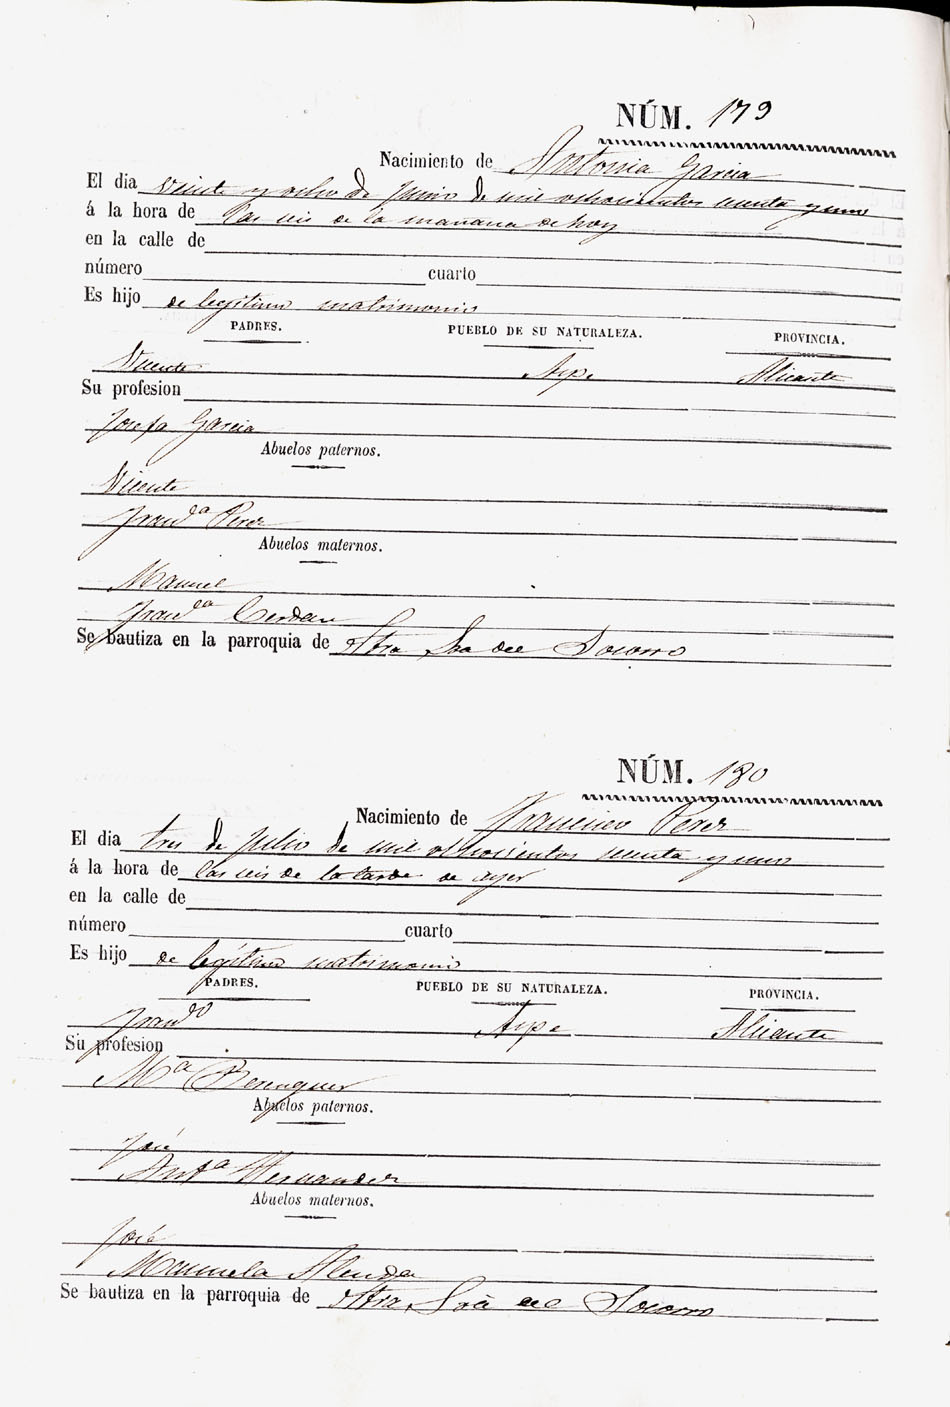 NÚM. 179
Nacimiento de Antonia Garcia
El dia veinte y ocho de Junio de mil ochocientos setenta y uno
á la hora de las seis de la mañana de hoy
en la calle de
número cuarto
Es hijo de legítimo matrimonio
PADRES. PUEBLO DE SU NATURALEZA. PROVINCIA.
Vicente Aspe Alicante
Su profesion
Josefa Garcia
Abuelos paternos.
Vicente
Fran.ca Perez
Abuelos maternos.
Manuel
Fran.ca Cerdan
Se bautiza en la parroquia de Ntra Sra del Socorro
NÚM. 180
Nacimiento de Francisco Perez
El dia tres de Julio de mil ochocientos setenta y uno
á la hora de las seis de la tarde de ayer
en la calle de
número cuarto
Es hijo de legítimo matrimonio
PADRES. PUEBLO DE SU NATURALEZA. PROVINCIA.
Fran.co Aspe Alicante
Su profesion
Mª Berenguer
Abuelos paternos.
José
Antª Hernandez
Abuelos maternos.
José
Manuela Alenda
Se bautiza en la parroquia de Ntra Sra del Socorro